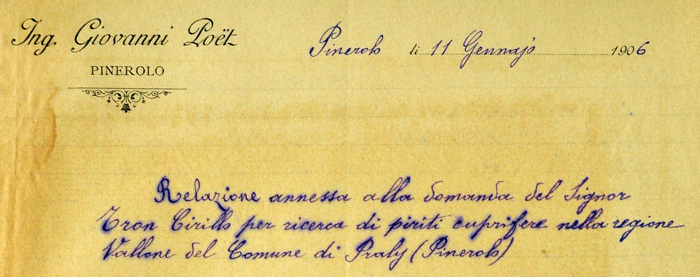 Ing. Giovanni Poët
PINEROLO
Pinerolo li 11 Gennajo 1906
Relazione annessa alla domanda del Signor
Tron Cirillo per ricerca di piriti cuprifere nella regione
Vallone del Comune di Praly (Pinerolo)